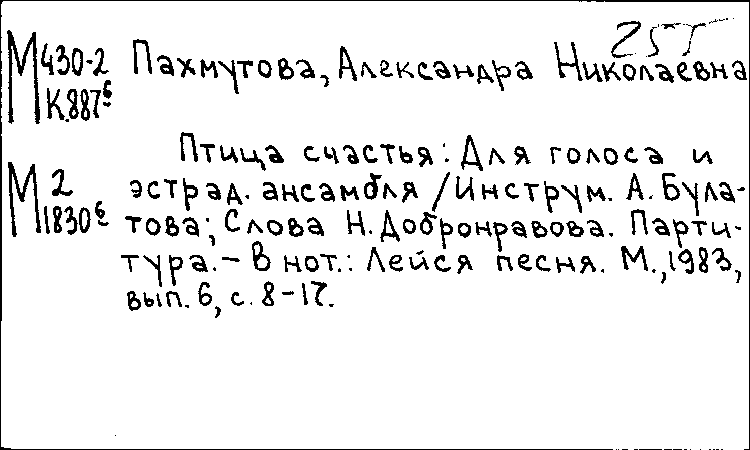 255
М 430-2 Пахмутова, Александра Николаевна
К.887б
Птица счастья: Для голоса и
М 2 эстрад. ансамбля / Инструм. А. Була-
1830б това; Слова Н. Добронравова. Парти-
тура. – В нот.: Лейся песня. М., 1983,
вып. 6, с. 8-17.